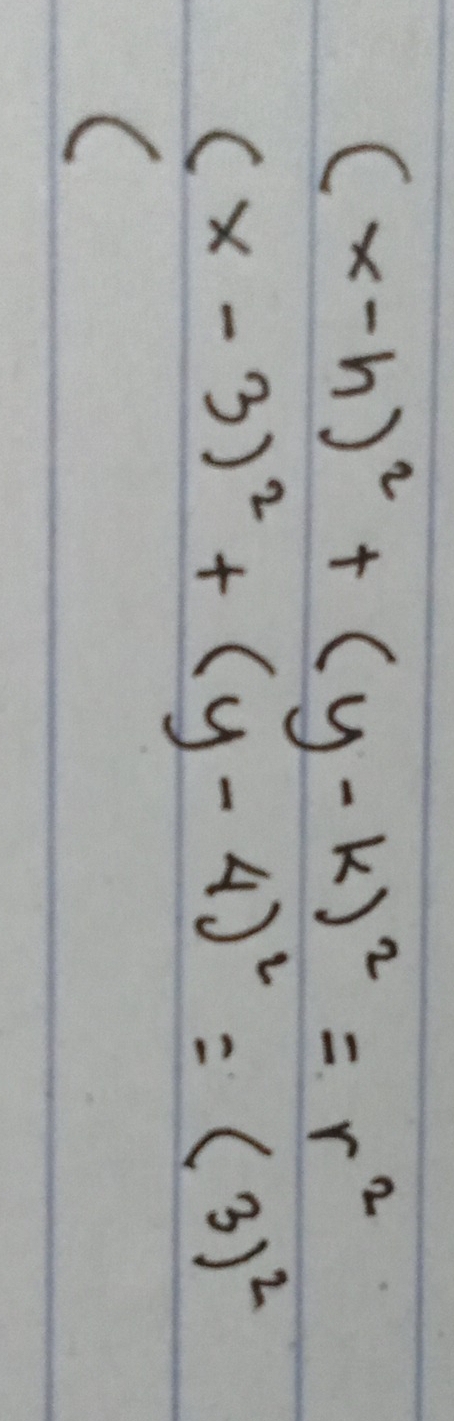 (x-h)² + (y-k)² = r²
(x-3)² + (y-4)² = (3)²
(